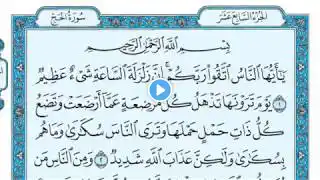 سُورَةُ الحَجِّ
الجُزْءُ السَّابِعَ عَشَرَ
بِسْمِ اللَّهِ الرَّحْمَٰنِ الرَّحِيمِ
يَا أَيُّهَا النَّاسُ اتَّقُوا رَبَّكُمْ ۚ إِنَّ زَلْزَلَةَ السَّاعَةِ شَيْءٌ عَظِيمٌ
١ يَوْمَ تَرَوْنَهَا تَذْهَلُ كُلُّ مُرْضِعَةٍ عَمَّا أَرْضَعَتْ وَتَضَعُ
كُلُّ ذَاتِ حَمْلٍ حَمْلَهَا وَتَرَى النَّاسَ سُكَارَىٰ وَمَا هُم
بِسُكَارَىٰ وَلَٰكِنَّ عَذَابَ اللَّهِ شَدِيدٌ ٢ وَمِنَ النَّاسِ مَن